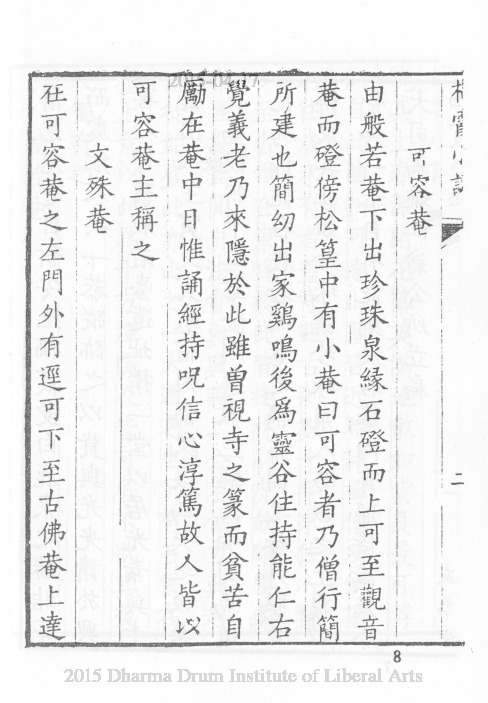 可容菴
由般若菴下出珍珠泉緣石磴而上可至觀音
菴而磴傍松篁中有小菴曰可容者乃僧行簡
所建也簡幼出家鷄鳴後爲靈谷住持能仁右
覺義老乃來隱於此雖曾視寺之篆而貧苦自
勵在菴中日惟誦經持呪信心淳篤故人皆以
可容菴主稱之
文殊菴
在可容菴之左門外有逕可下至古佛菴上達
二
8
2015 Dharma Drum Institute of Liberal Arts